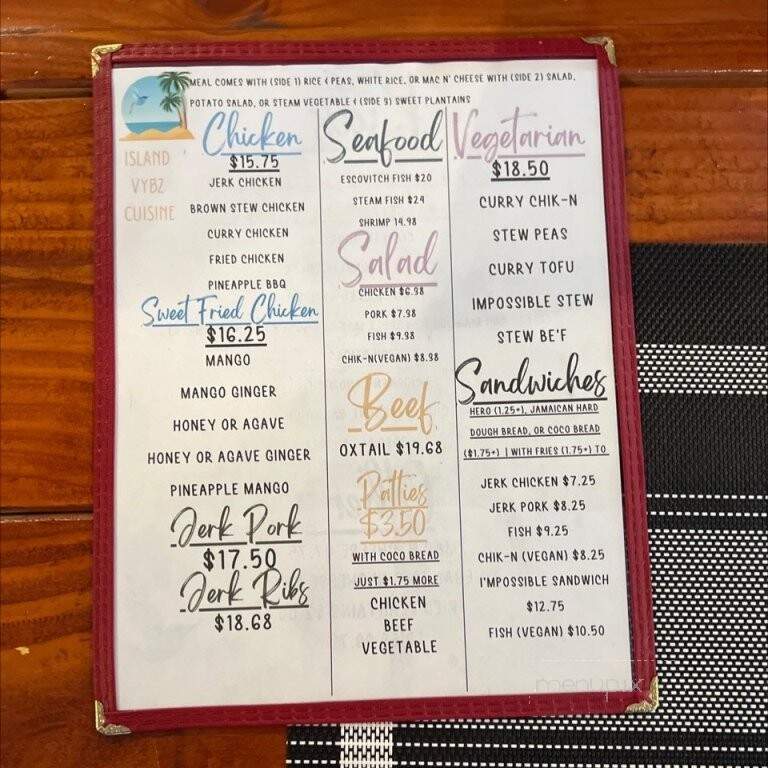 MEAL COMES WITH (SIDE 1) RICE & PEAS, WHITE RICE, OR MAC N' CHEESE WITH (SIDE 2) SALAD,
POTATO SALAD, OR STEAM VEGETABLE & (SIDE 3) SWEET PLANTAINS
ISLAND
VYBZ
CUISINE
Chicken
$15.75
JERK CHICKEN
BROWN STEW CHICKEN
CURRY CHICKEN
FRIED CHICKEN
PINEAPPLE BBQ
Sweet Fried Chicken
$16.25
MANGO
MANGO GINGER
HONEY OR AGAVE
HONEY OR AGAVE GINGER
PINEAPPLE MANGO
Jerk Pork
$17.50
Jerk Ribs
$18.68
Seafood
ESCOVITCH FISH $20
STEAM FISH $24
SHRIMP 14.98
Salad
CHICKEN $6.98
PORK $7.98
FISH $9.98
CHIK-N(VEGAN) $8.98
Beef
OXTAIL $19.68
Patties
$3.50
WITH COCO BREAD
JUST $1.75 MORE
CHICKEN
BEEF
VEGETABLE
Vegetarian
$18.50
CURRY CHIK-N
STEW PEAS
CURRY TOFU
IMPOSSIBLE STEW
STEW BE'F
Sandwiches
HERO (1.25+), JAMAICAN HARD
DOUGH BREAD, OR COCO BREAD
($1.75+) | WITH FRIES (1.75+) TO
JERK CHICKEN $7.25
JERK PORK $8.25
FISH $9.25
CHIK-N (VEGAN) $8.25
I'MPOSSIBLE SANDWICH
$12.75
FISH (VEGAN) $10.50
menupix